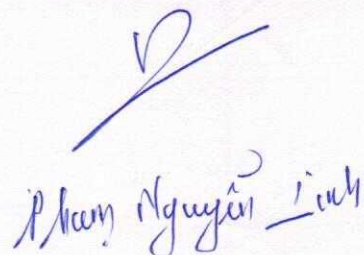 Phạm Nguyễn Linh